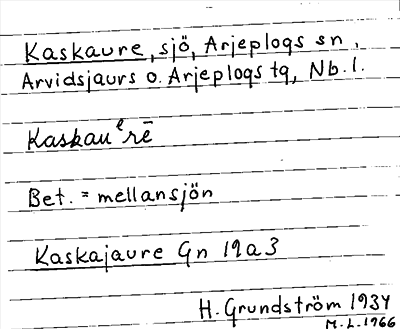 Kaskaure, sjö, Arjeplogs sn,
Arvidsjaurs o. Arjeplogs tg, Nb. l.
Kaskauᵉrē
Bet. = mellansjön
Kaskajaure Gn 19a3
H. Grundström 1934
M.L. 1966